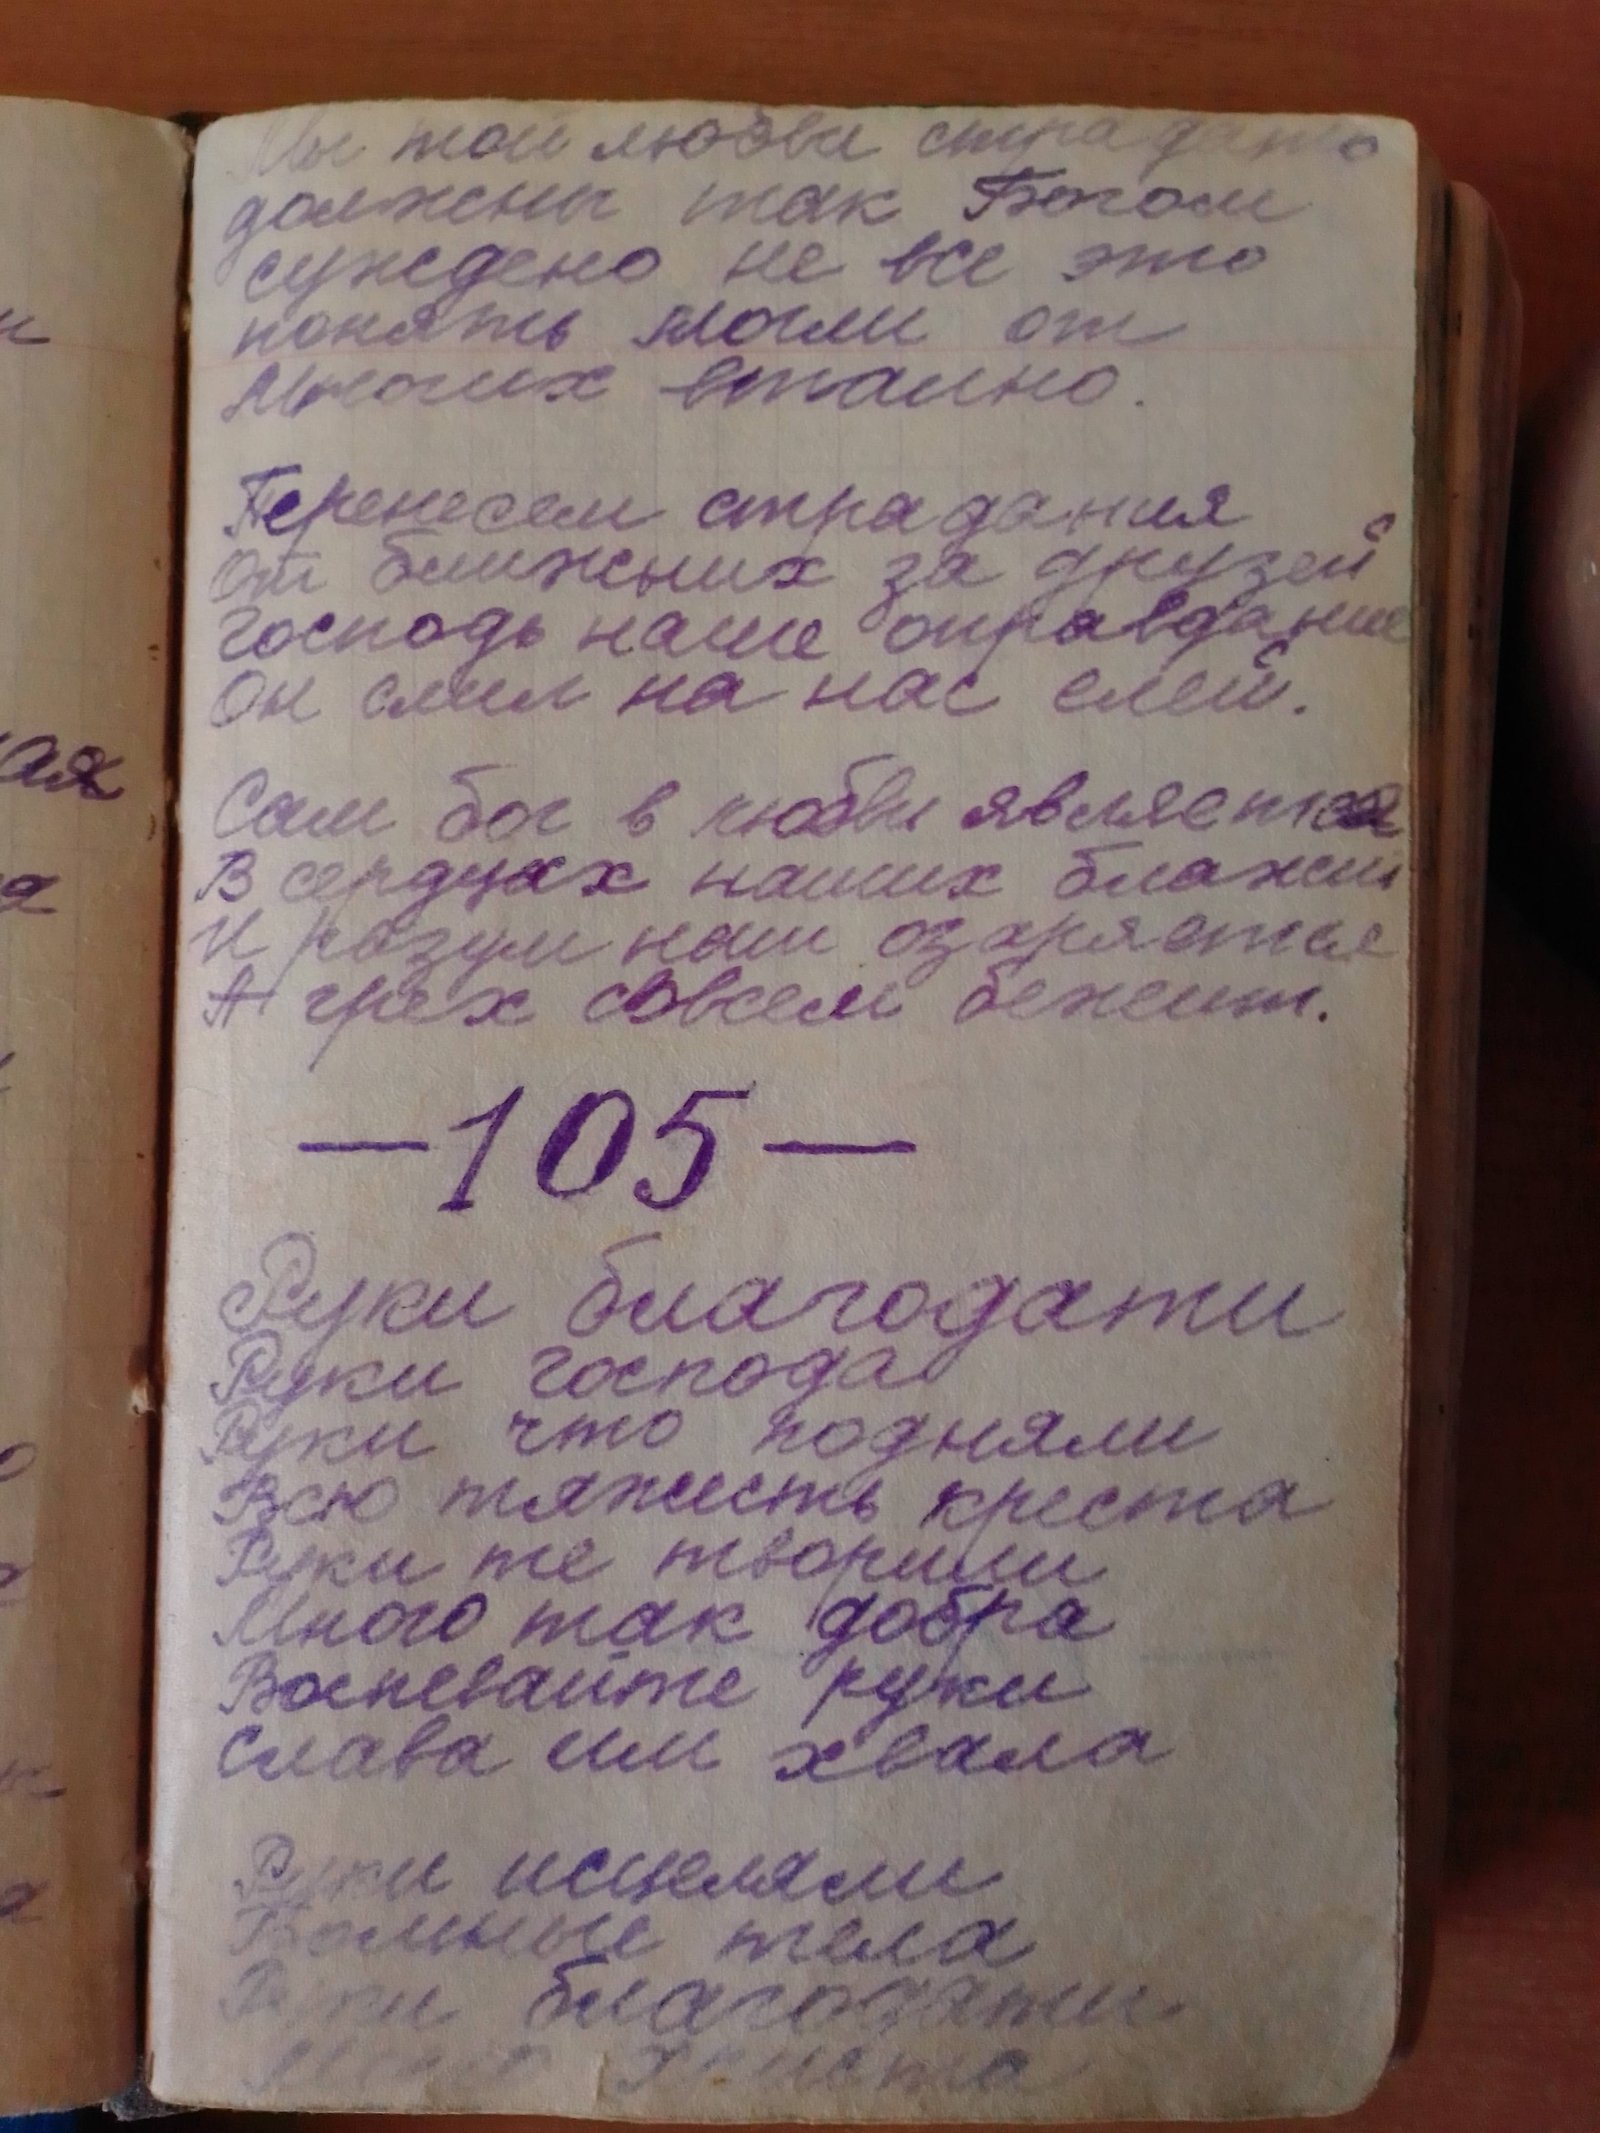 Мы той любви страдать
должены так Богом
суждено не все это
понять могли от
Многих втаино.
Перенесем страдания
От ближних за друзей
Господь наше оправдание
Он смил на нас елей.
Сам бог в любви является
В сердцах наших блажен
И разум наш озаряется
А грех совсем бежит.
—105—
Руки благодати
Руки господа
Руки что подняли
Всю тяжесть креста
Руки те творили
Много так добра
Воспевайте руки
Слава им хвала
Руки исцеляли
Больные тела
Руки благодати
Христа